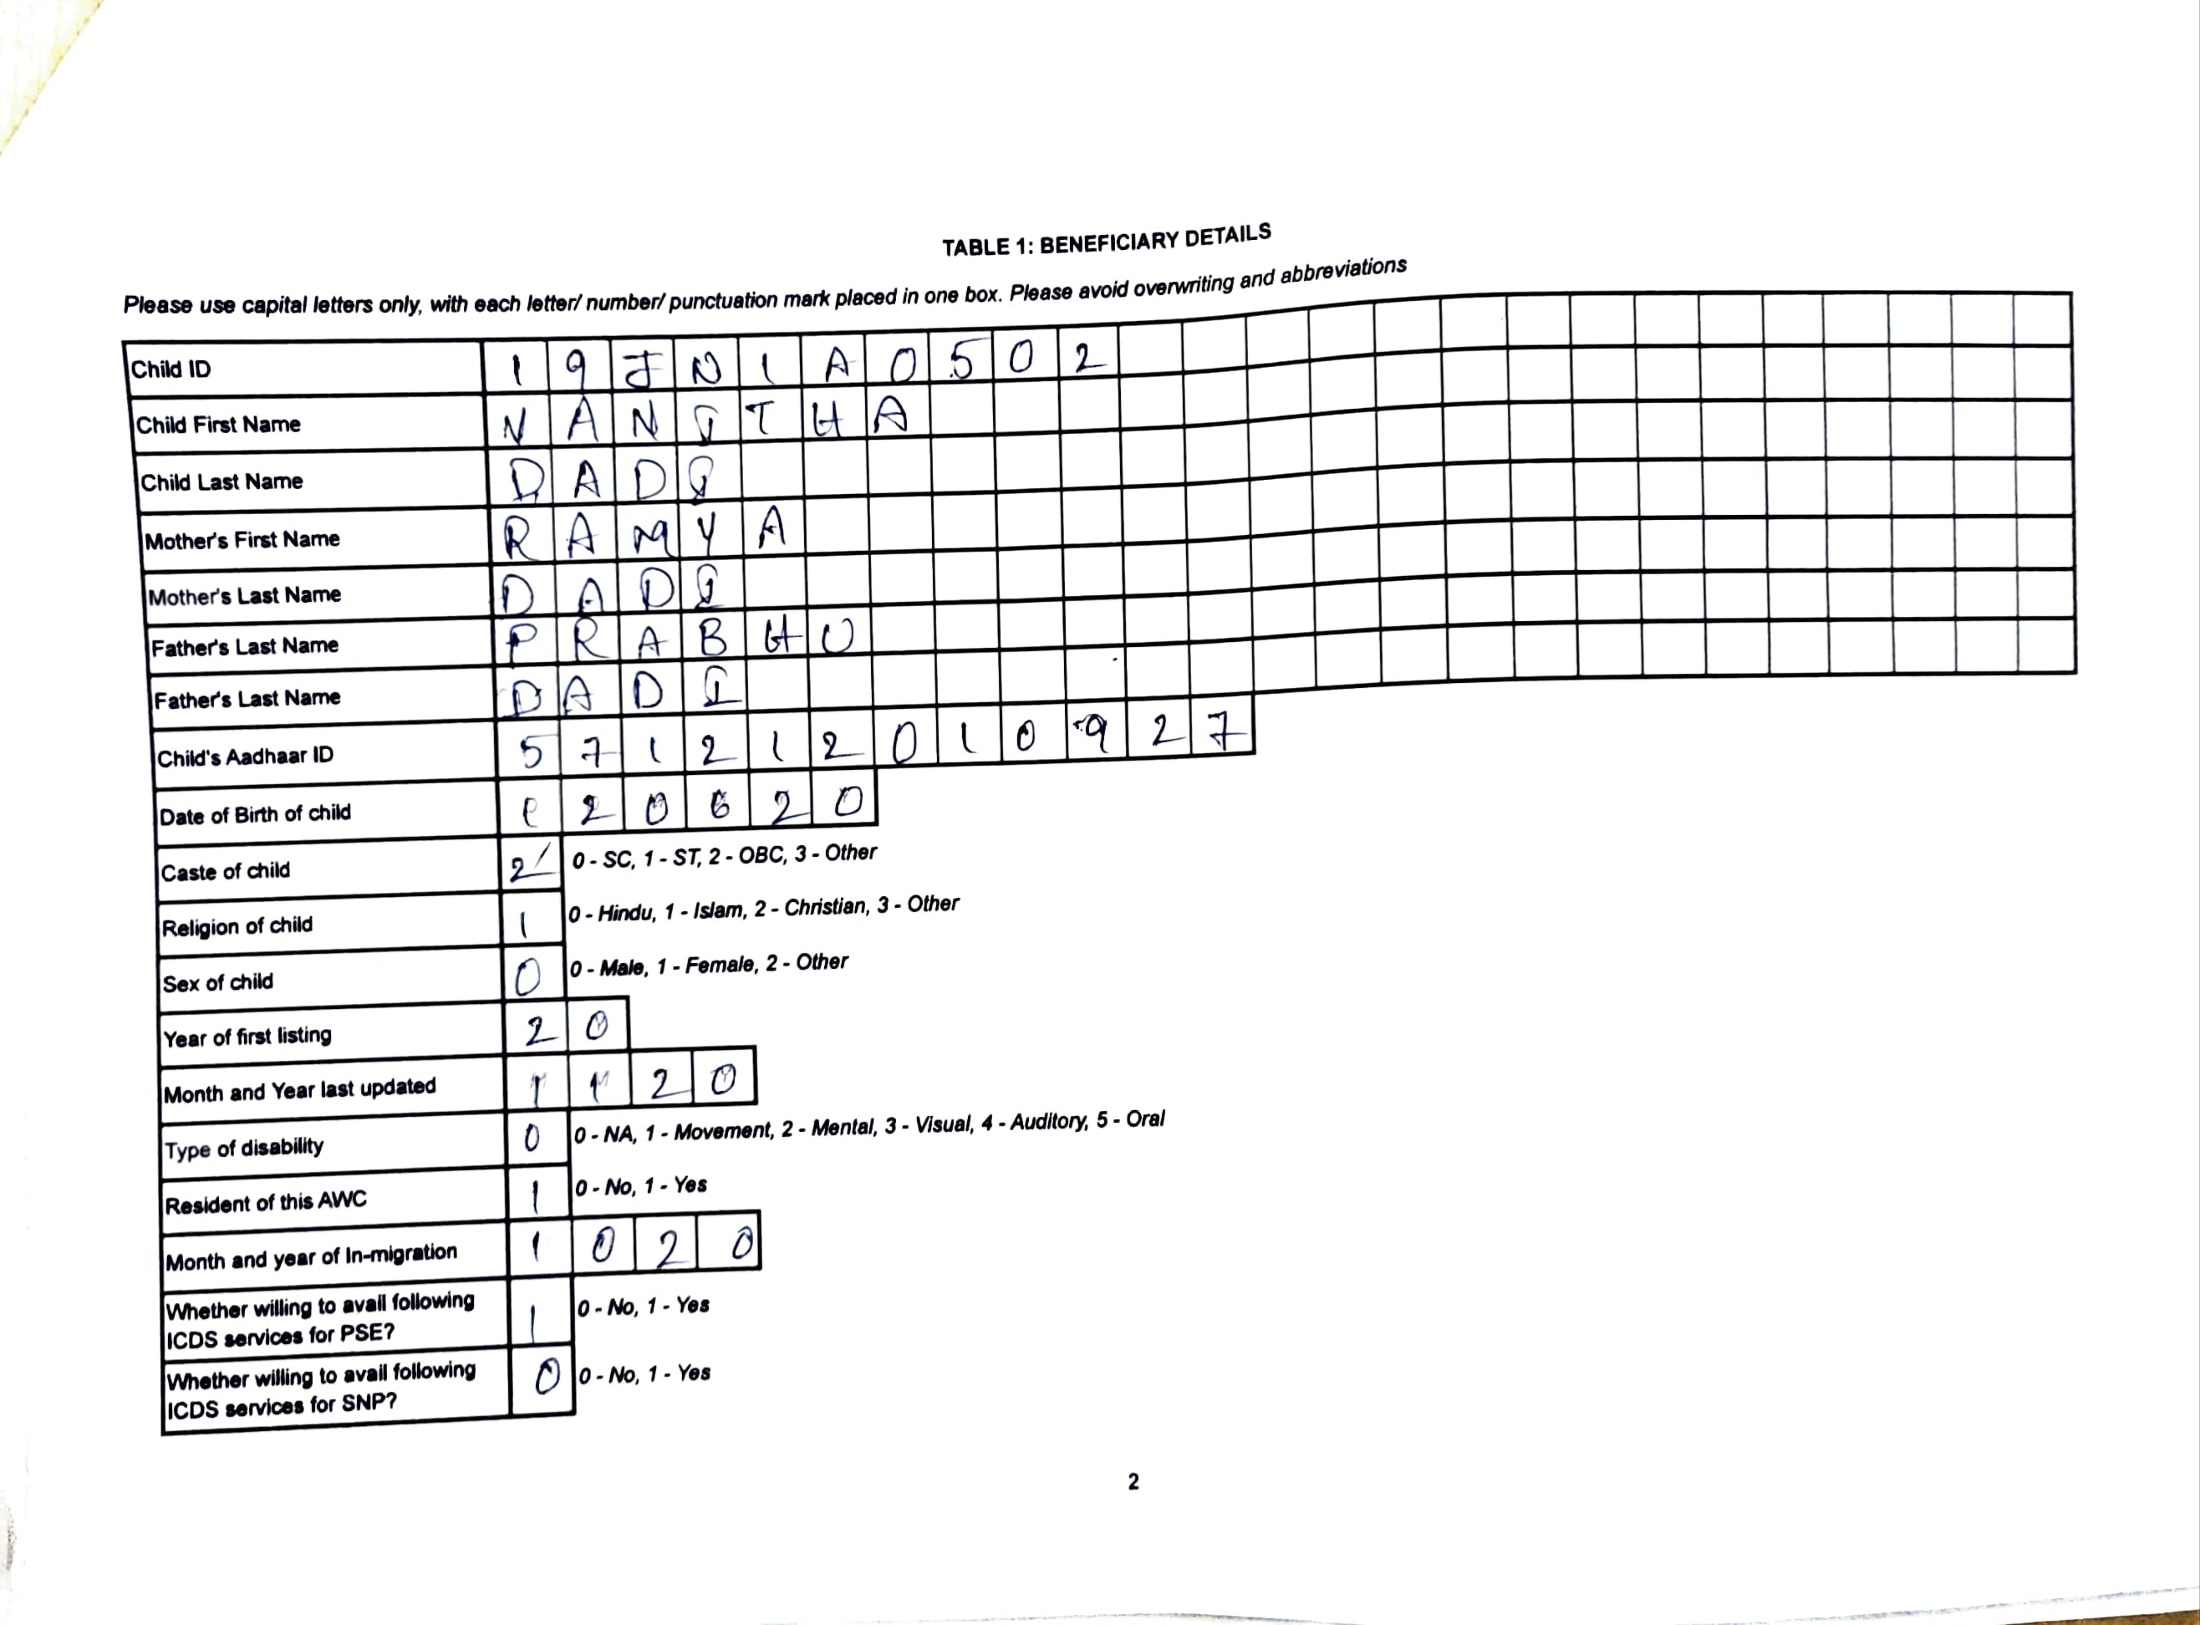 TABLE 1: BENEFICIARY DETAILS
Please use capital letters only, with each letter/ number/ punctuation mark placed in one box. Please avoid overwriting and abbreviations
Child ID 19JN1A0502
Child First Name VANITHA
Child Last Name DADI
Mother's First Name RAMYA
Mother's Last Name DADI
Father's Last Name PRABHU
Father's Last Name DADI
Child's Aadhaar ID 571212010927
Date of Birth of child 20620
Caste of child 2 0 - SC, 1 - ST, 2 - OBC, 3 - Other
Religion of child 1 0 - Hindu, 1 - Islam, 2 - Christian, 3 - Other
Sex of child 0 0 - Male, 1 - Female, 2 - Other
Year of first listing 20
Month and Year last updated 1120
Type of disability 0 0 - NA, 1 - Movement, 2 - Mental, 3 - Visual, 4 - Auditory, 5 - Oral
Resident of this AWC 1 0 - No, 1 - Yes
Month and year of In-migration 1020
Whether willing to avail following
ICDS services for PSE? 1 0 - No, 1 - Yes
Whether willing to avail following
ICDS services for SNP? 0 0 - No, 1 - Yes
2